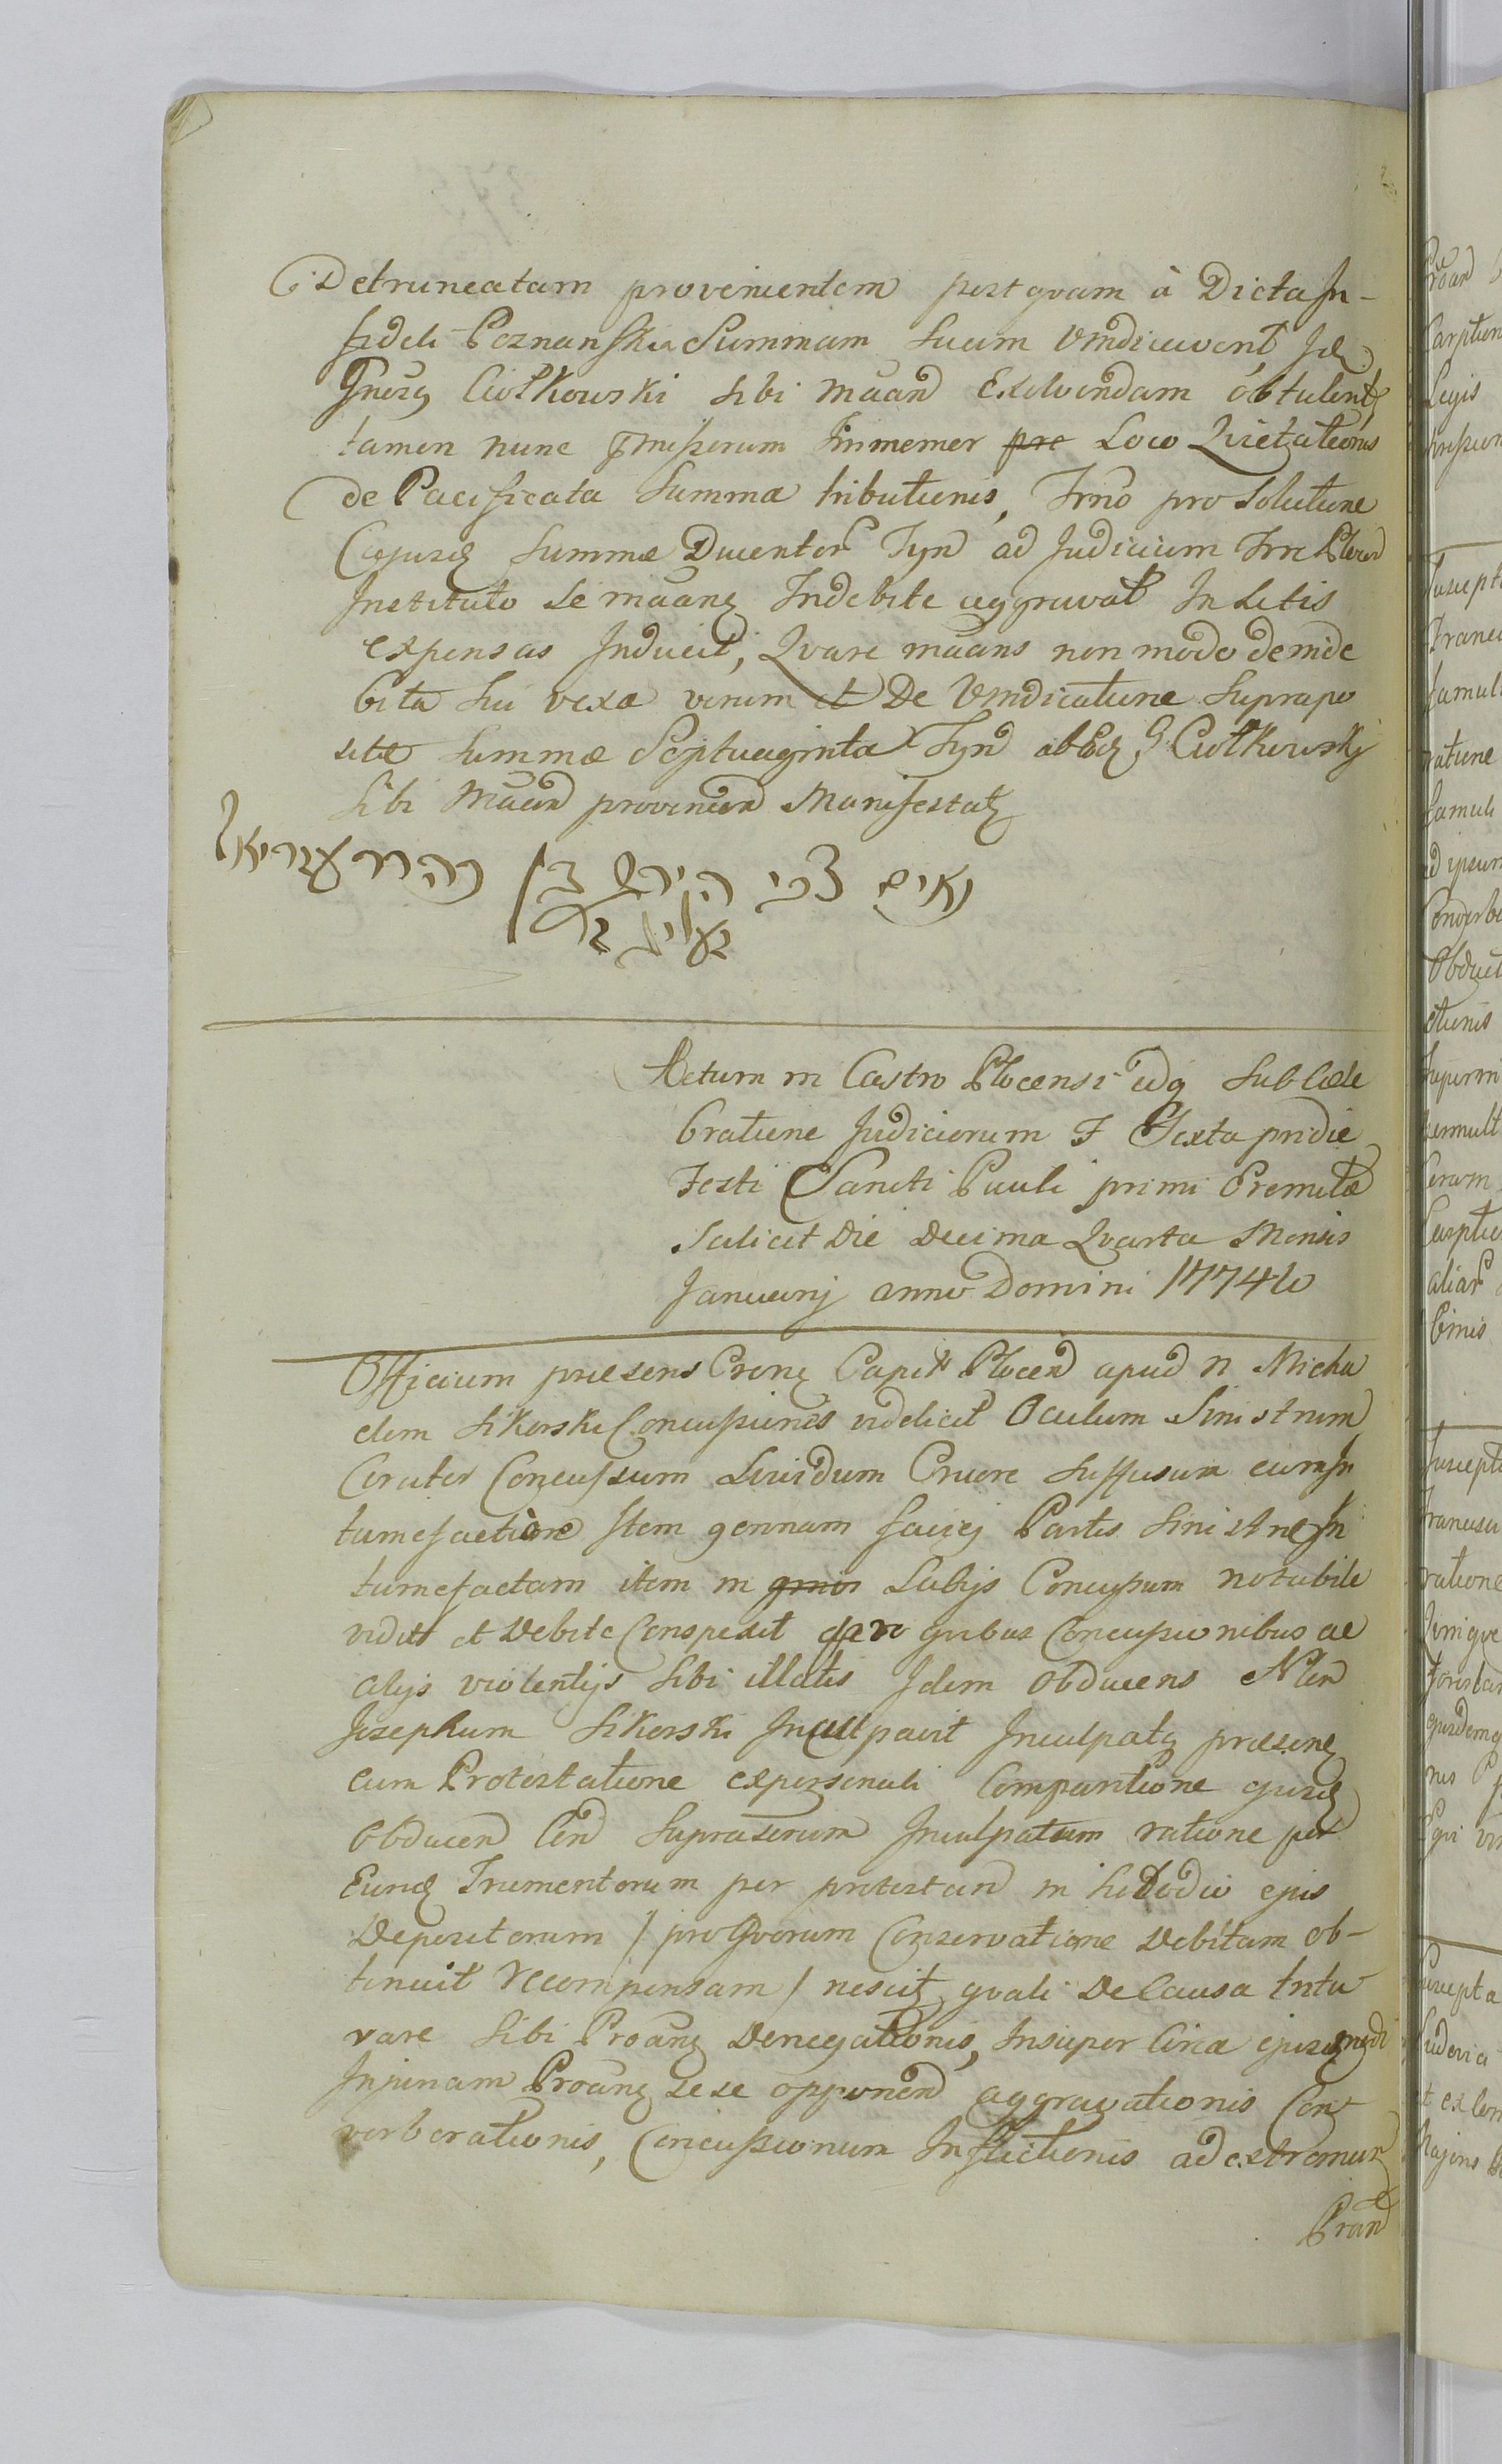 Detruncatam provenientem postqvam à Dicta In-
fideli Poznanska Summam Suam Vindicavent, Id
Gnosg Ciołkowski sibi maand Exolvendam obtulent
tamen nunc pmissorum Immemor pre Loco Qvietationis
de Pacificata Summa tributionis, Trno pro Solutione
Ejusd Summæ Ducentor Tyn ad Judicium Trre Plocen
Instituto se maang Indebite aggravat In Litis
expensas Inducit, Qvare maans non modo de inde
bita sui vexa verum et De Vindicatione Suprapo
sitæ Summæ Septuaginta Tyn ab Eod G Ciołkowski
Sibi Maand provenien Manifestat
נאום צבי הירש בן מהורר עזריאל
Actum in Castro Plocensi idq Sub Cele
bratione Judiciorum F Sexta pridie
Festi Sancti Pauli primi Eremitæ
Scilicet Die Decima Qvarta Mensis
Januarij anno Domini 1774to
Officium præsens Crens Capitle Plocen apud N Micha
elem Sikorski Concussiones videlicet Oculum Sinistrum
Cruter Concussum Lividum Cruore Suffusum cum In
tumefactione Item gennam faciej Partis Sinistræ In
tumefactam item in Labijs Concussum notabile
vidit et Debite Conspexit qbus Concussionibus ac
alijs violentijs Sibi illatis Idem Obducens Nlem
Josephum Sikorski Inculpavit Inculpatq præsens
cum Protestatione ex personali Comparitione ejusd
Obducen Cen Suprascrum Inculpatum ratione per
Eund Frumentorum per protestan in ejus
Depositorum / pro Qvorum Conservatione Debitam ob-
tinuit recompensam / nescit qvali De Causa Intu
rare Sibi Proang Denegationis, Insuper Circa ejusmodi
Injuriam Proang sese opponen aggravationis Con
verberationis, Concussionum Inflictionis ad extremum
Pran